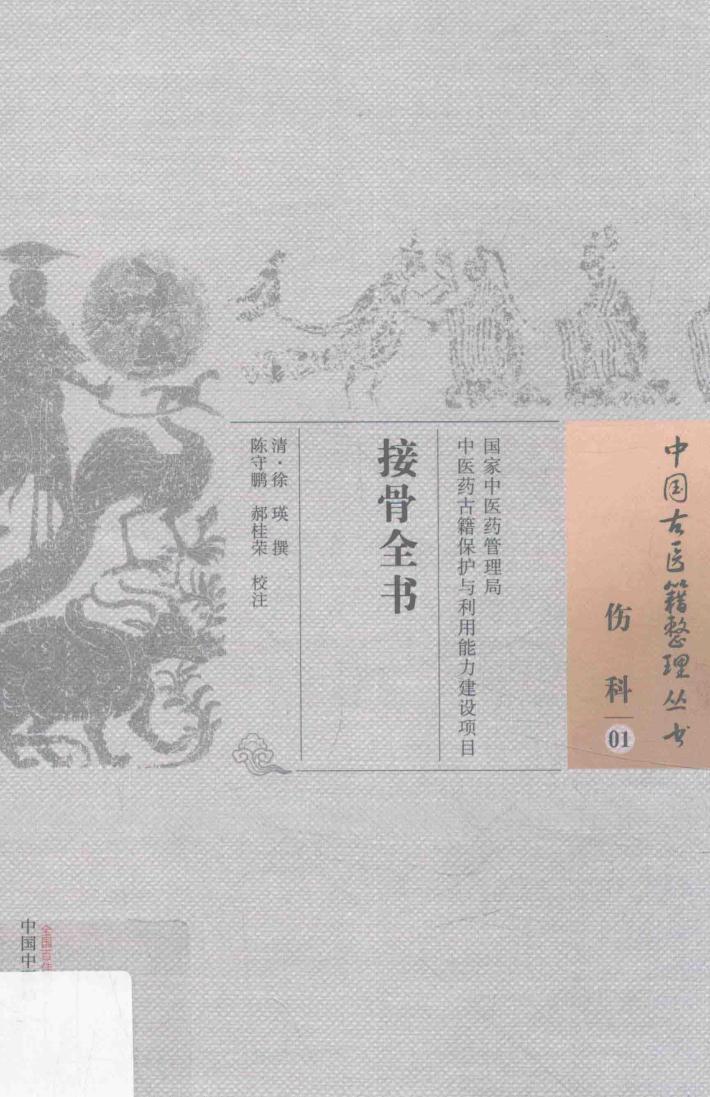 中国古医籍整理丛书
伤科
01
国家中医药管理局
中医药古籍保护与利用能力建设项目
接骨全书
清·徐瑛 撰
陈守鹏 郝桂荣 校注
全国百佳
中国中